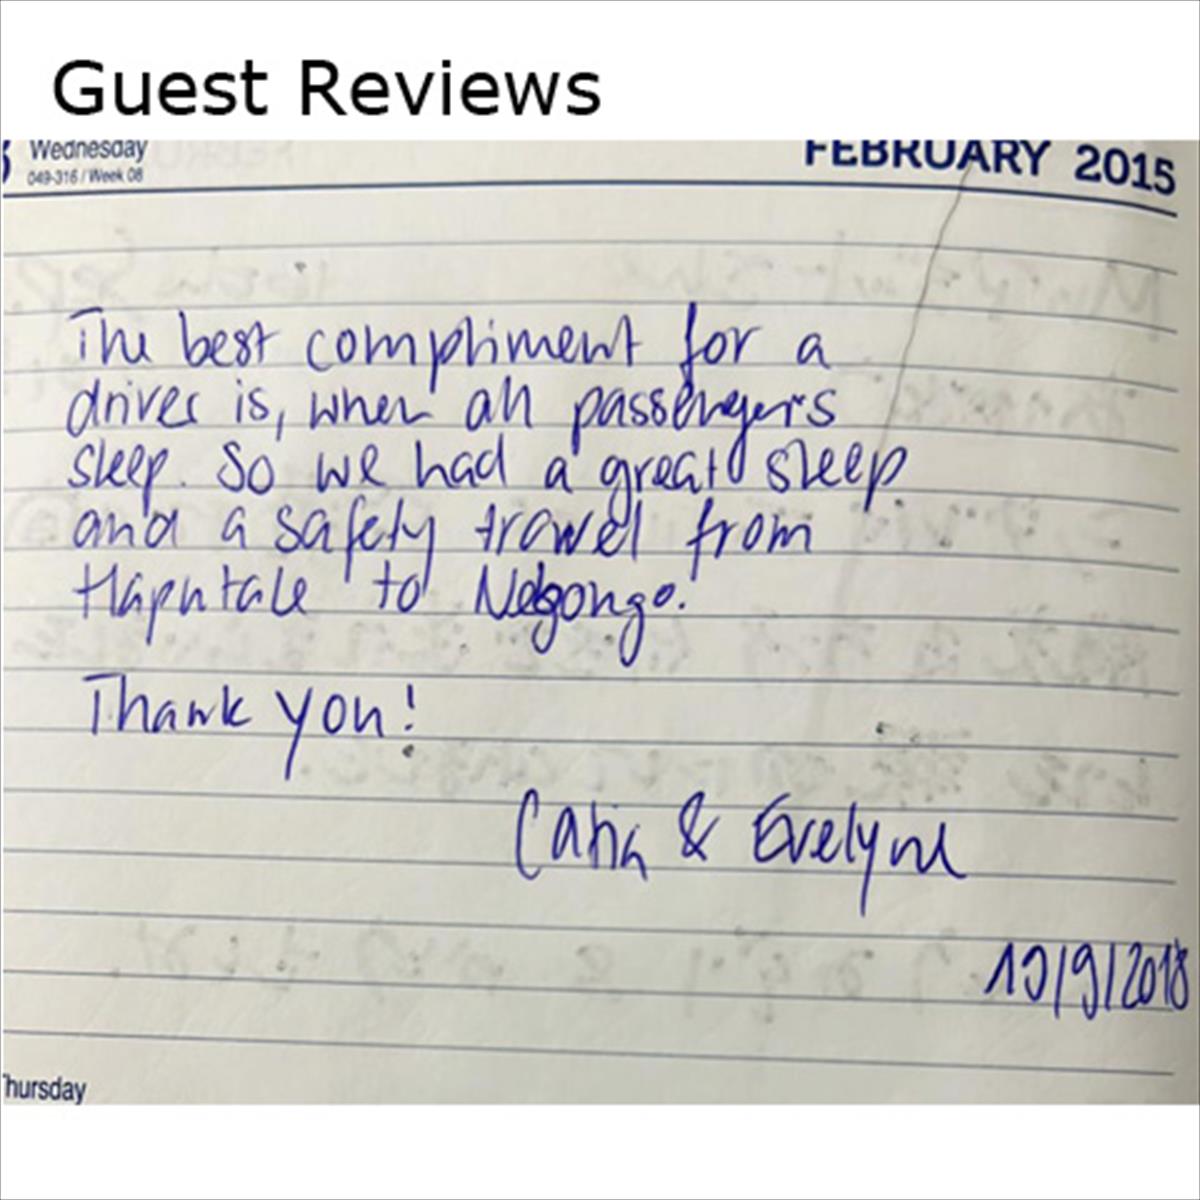 Guest Reviews
Wednesday
049-316 / Week 08
FEBRUARY 2015
The best compliment for a
driver is, when all passengers
sleep. So we had a great sleep
and a safety travel from
Haputale to Negongo.
Thank you!
Catia & Evelyne
10/9/2018
Thursday